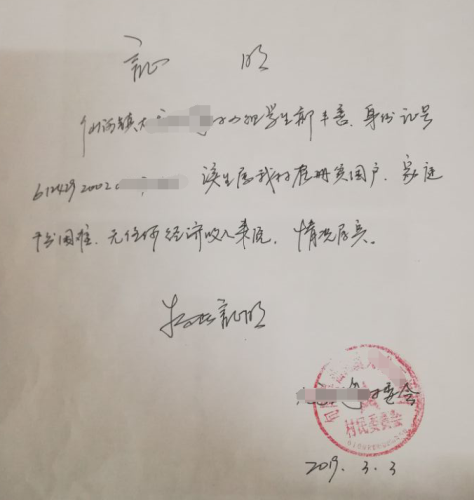 证 明
仙河镇大 村小组学生郭丰喜，身份证号
6124292002 该生属我村在册贫困户，家庭
十分困难，无任何经济收入来源，情况属实。
特此证明
村委会
村民委员会
2019.3.3